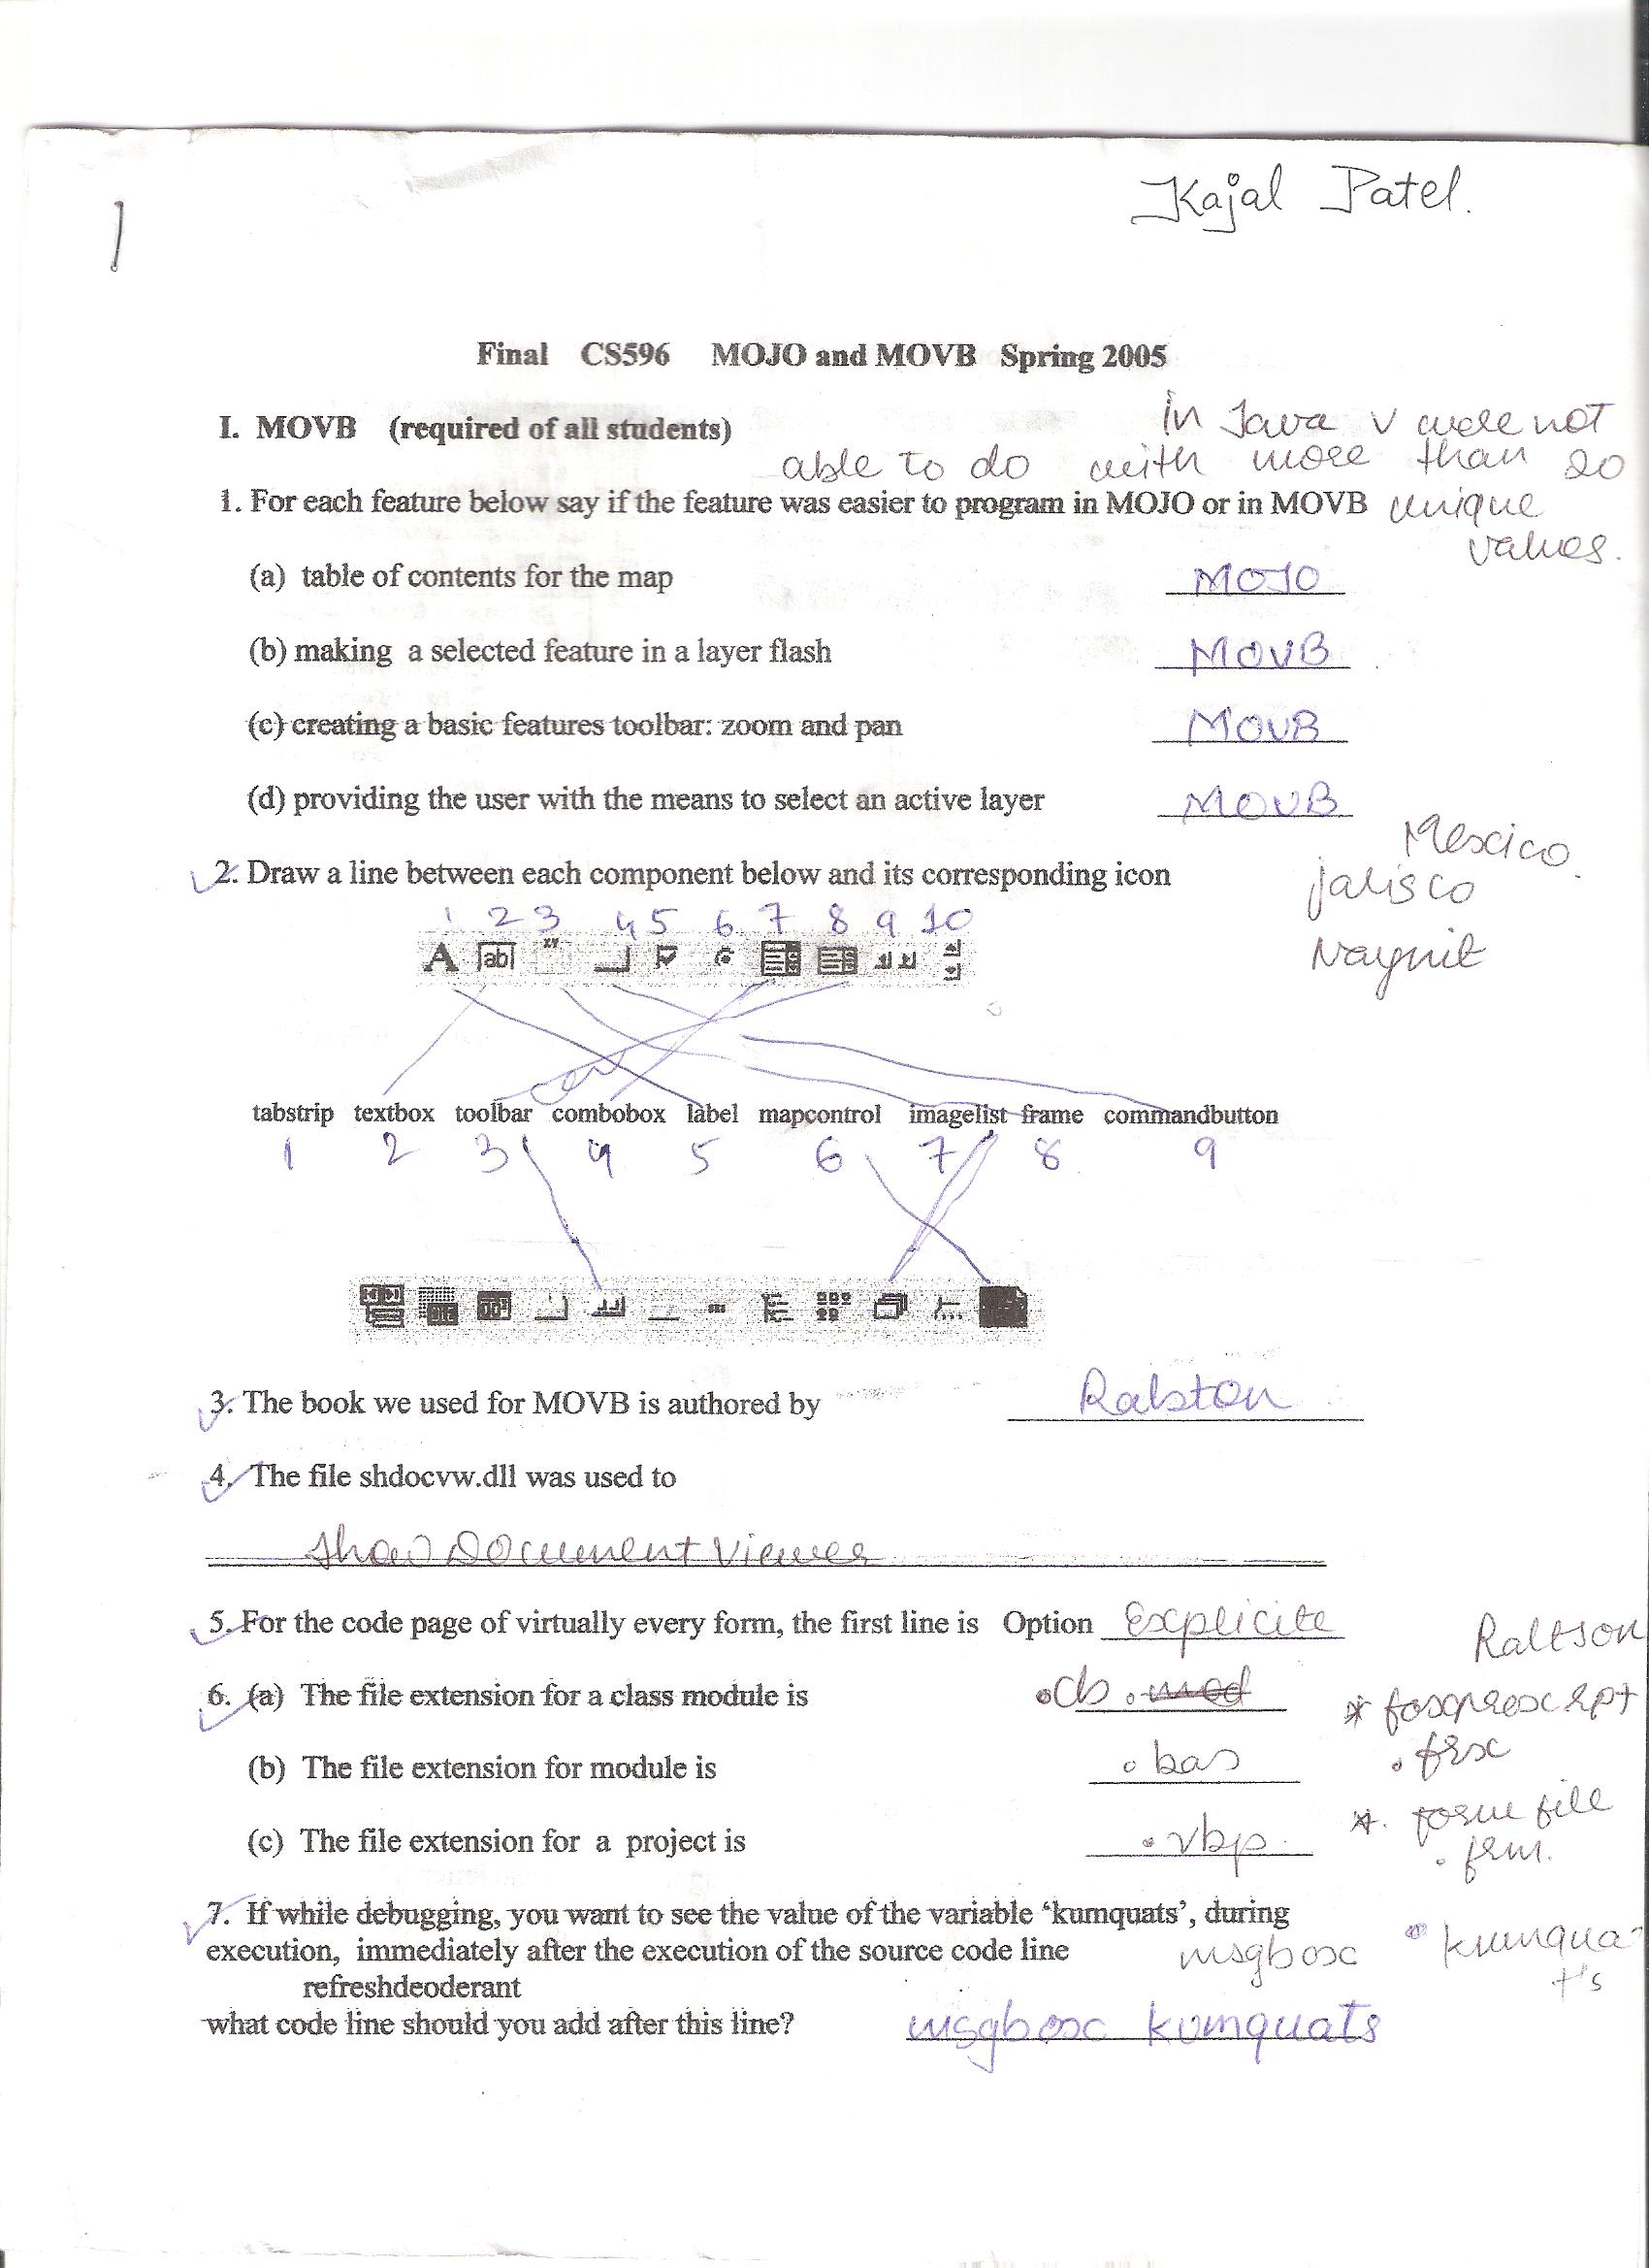 Kajal Patel.
1
Final CS596 MOJO and MOVB Spring 2005
I. MOVB (required of all students)
in Java v were not
able to do with more than 20
unique
values.
1. For each feature below say if the feature was easier to program in MOJO or in MOVB
(a) table of contents for the map MOJO
(b) making a selected feature in a layer flash MOVB
(c) creating a basic features toolbar: zoom and pan MOVB
(d) providing the user with the means to select an active layer MOVB
Mexico.
jalisco
Nayrit
2. Draw a line between each component below and its corresponding icon
1 2 3 4 5 6 7 8 9 10
A ab xy
tabstrip textbox toolbar combobox label mapcontrol imagelist frame commandbutton
1 2 3 4 5 6 7 8 9
3. The book we used for MOVB is authored by Ralston
4. The file shdocvw.dll was used to
show Document Viewer
5. For the code page of virtually every form, the first line is Option Explicite
Raltson
6. (a) The file extension for a class module is .cls .mod
* foxproscript
.frx
(b) The file extension for module is .bas
*. form file
.frm.
(c) The file extension for a project is .vbp.
7. If while debugging, you want to see the value of the variable ‘kumquats’, during
execution, immediately after the execution of the source code line
msgbox kumqua
t's
refreshdeoderant
what code line should you add after this line? msgbox kumquats